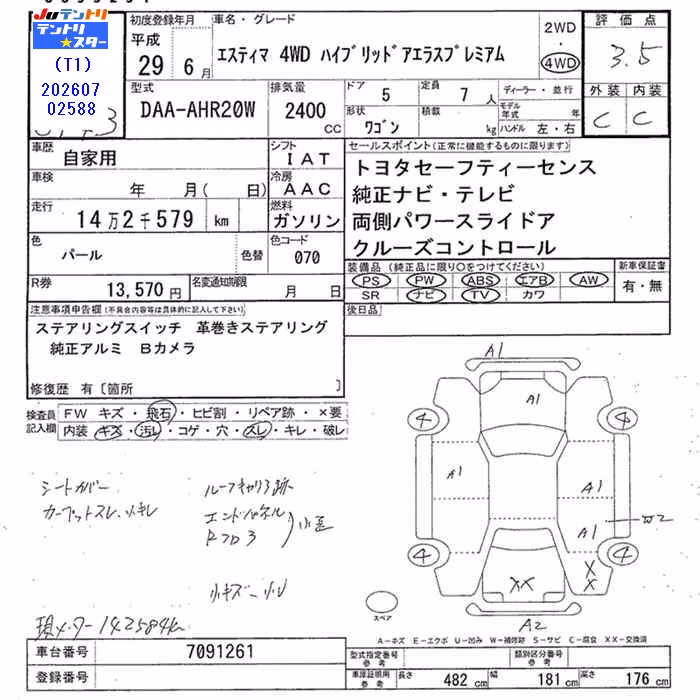 Juテントリ
テントリ★スター
(T1)
202607
02588
初度登録年月
平成
29年 6月
車名・グレード
エスティマ 4WD ハイブリッドアエラスプレミアム
2WD
・
4WD
評価点
3.5
外装 内装
C C
型式
DAA-AHR20W
排気量
2400
CC
ドア 5
定員 7人
形状 ワゴン
積載 kg
ディーラー・並行
モデル年式 年
ハンドル 左・右
車歴 自家用
シフト IAT
車検 年 月( 日)
冷房 AAC
走行 14万2千579 km
燃料 ガソリン
色 パール 色替
色コード 070
R券 13,570円
名変通知期限 月 日
セールスポイント(正常に機能するものに限ります)
トヨタセーフティーセンス
純正ナビ・テレビ
両側パワースライドア
クルーズコントロール
装備品(純正品に限り○をつけてください)
PS PW ABS エアB AW
SR ナビ TV カワ
新車保証書
有・無
注意事項申告欄(不具合内容等は具体的に記入して下さい)
ステアリングスイッチ 革巻きステアリング
純正アルミ Bカメラ
修復歴 有〔箇所 〕
後日品
検査員記入欄
FW キズ・飛石・ヒビ割・リペア跡・×要
内装 キズ・汚レ・コゲ・穴・スレ・キレ・破レ
シートカバー
カーペットスレ、小キレ
ルーフキャリア跡
エンドパネル
RフロA
小歪
小キズ〜小U
現メーター142584km
A1
A1
4
4
A1
A1
A1
W2
4
4
X
X
XX
A2
スペア
A-キズ E-エクボ U-凹み W-補修跡 S-サビ C-腐食 XX-交換済
車台番号 7091261
登録番号
型式指定番号 参考
類別区分番号 参考
車庫証明用 参考
長さ 482 cm 幅 181 cm 高さ 176 cm